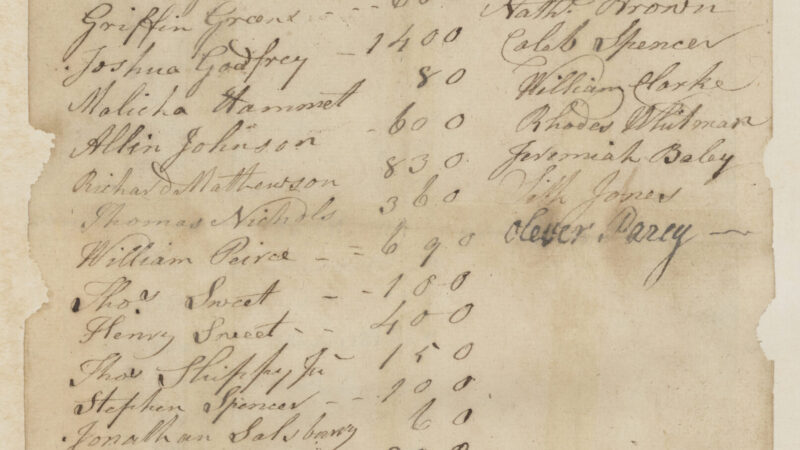 Griffin Greene - - -
Joshua Godfrey - 1400
Malicha Hammet 80
Allin Johnson - 600
Richard Matthewson 830
Thomas Nichols 360
William Peirce - = 690
Thos Sweet - - - 100
Henry Sweet - - 400
Thos Shippy Jr 150
Stephen Spencer - 100
Jonathan Salsbury 60
Nathl Brown
Caleb Spencer
William Clarke
Rhodes Whitman
Jeremiah Baley
Jones